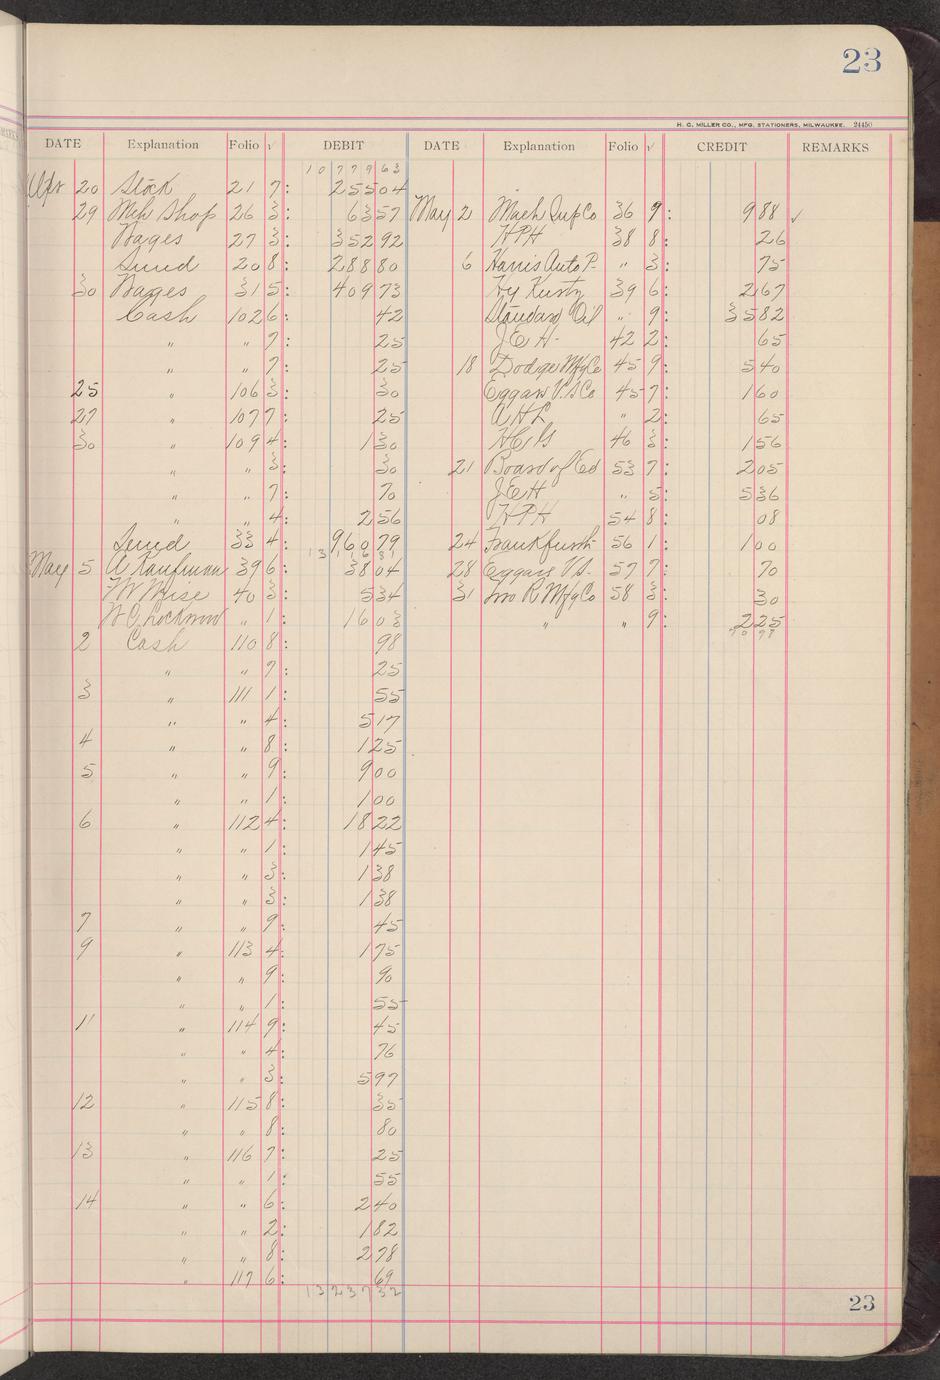 23
H. C. MILLER CO., MFG. STATIONERS, MILWAUKEE. 24450
DATE Explanation Folio √ DEBIT DATE Explanation Folio √ CREDIT REMARKS
10 779 63
Apr 20 Stock 21 7: 255 04
29 Mch Shop 26 3: 63 57 May 2 Mach Sup Co 36 9: 9 88 ✓
Wages 27 3: 352 92 HPH 38 8: 26
Sund 20 8: 288 80 6 Harris Auto P- " 3: 75
30 Wages 31 5: 409 73 Hy 39 6: 2 67
Cash 102 6: 42 Standard Oil " 9: 35 82
" " 7: 25 JEH- 42 2: 65
" " 7: 25 18 Dodge Mfg Co 45 9: 5 40
25 " 106 3: 30 Eggars V.S Co 45 7: 1 60
27 " 107 7: 25 AHL " 2: 65
30 " 109 4: 1 30 46 3: 1 56
" " 3: 30 21 Board of Ed 53 7: 2 05
" " 7: 70 JEH " 5: 5 36
" " 4: 2 56 HPH 54 8: 08
Sund 33 4: 960 79 24 56 1: 1 00
May 5 A Kaufman 39 6: 38 04 28 Eggars V.S. 57 7: 70
F W Wise 40 3: 5 34 31 R Mfg Co 58 3: 30
W.C. " 1: 16 03 " " 9: 2 25
2 Cash 110 8: 98 70 98
" " 7: 25
3 " 111 1: 55
" " 4: 5 17
4 " " 8: 1 25
5 " " 9: 9 00
" " 1: 1 00
6 " 112 4: 18 22
" " 1: 1 45
" " 3: 1 38
" " 3: 1 38
7 " " 9: 45
9 " 113 4: 1 75
" " 9: 90
" " 1: 55
11 " 114 9: 45
" " 4: 76
" " 3: 5 97
12 " 115 8: 35
" " 8: 80
13 " 116 7: 25
" " 1: 55
14 " " 6: 2 40
" " 2: 1 82
" " 8: 2 78
" 117 6: 69
13 237 32
23